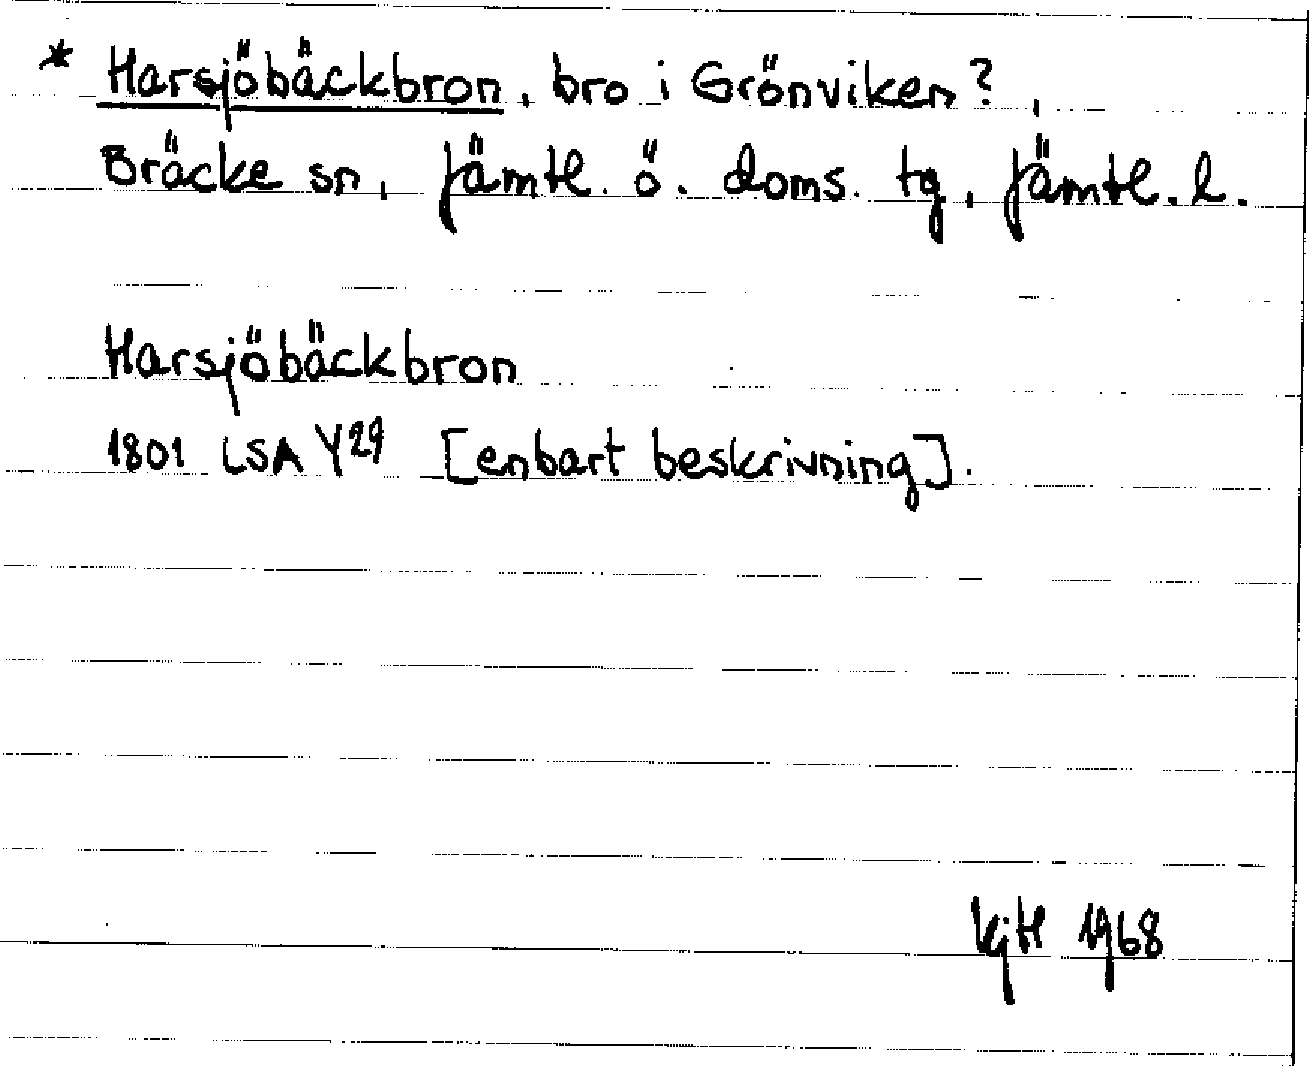 * Harsjöbäckbron, bro i Grönviken?,
Bräcke sn, Jämtl. ö. doms. tg, Jämtl. l.
Harsjöbäckbron
1801 LSA Y29 [enbart beskrivning].
KjH 1968